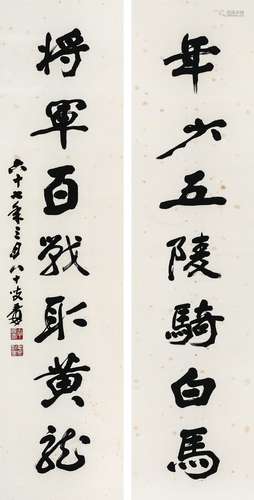 年少五陵騎白馬
將軍百戰取黃龍
六十七年三月八十叟